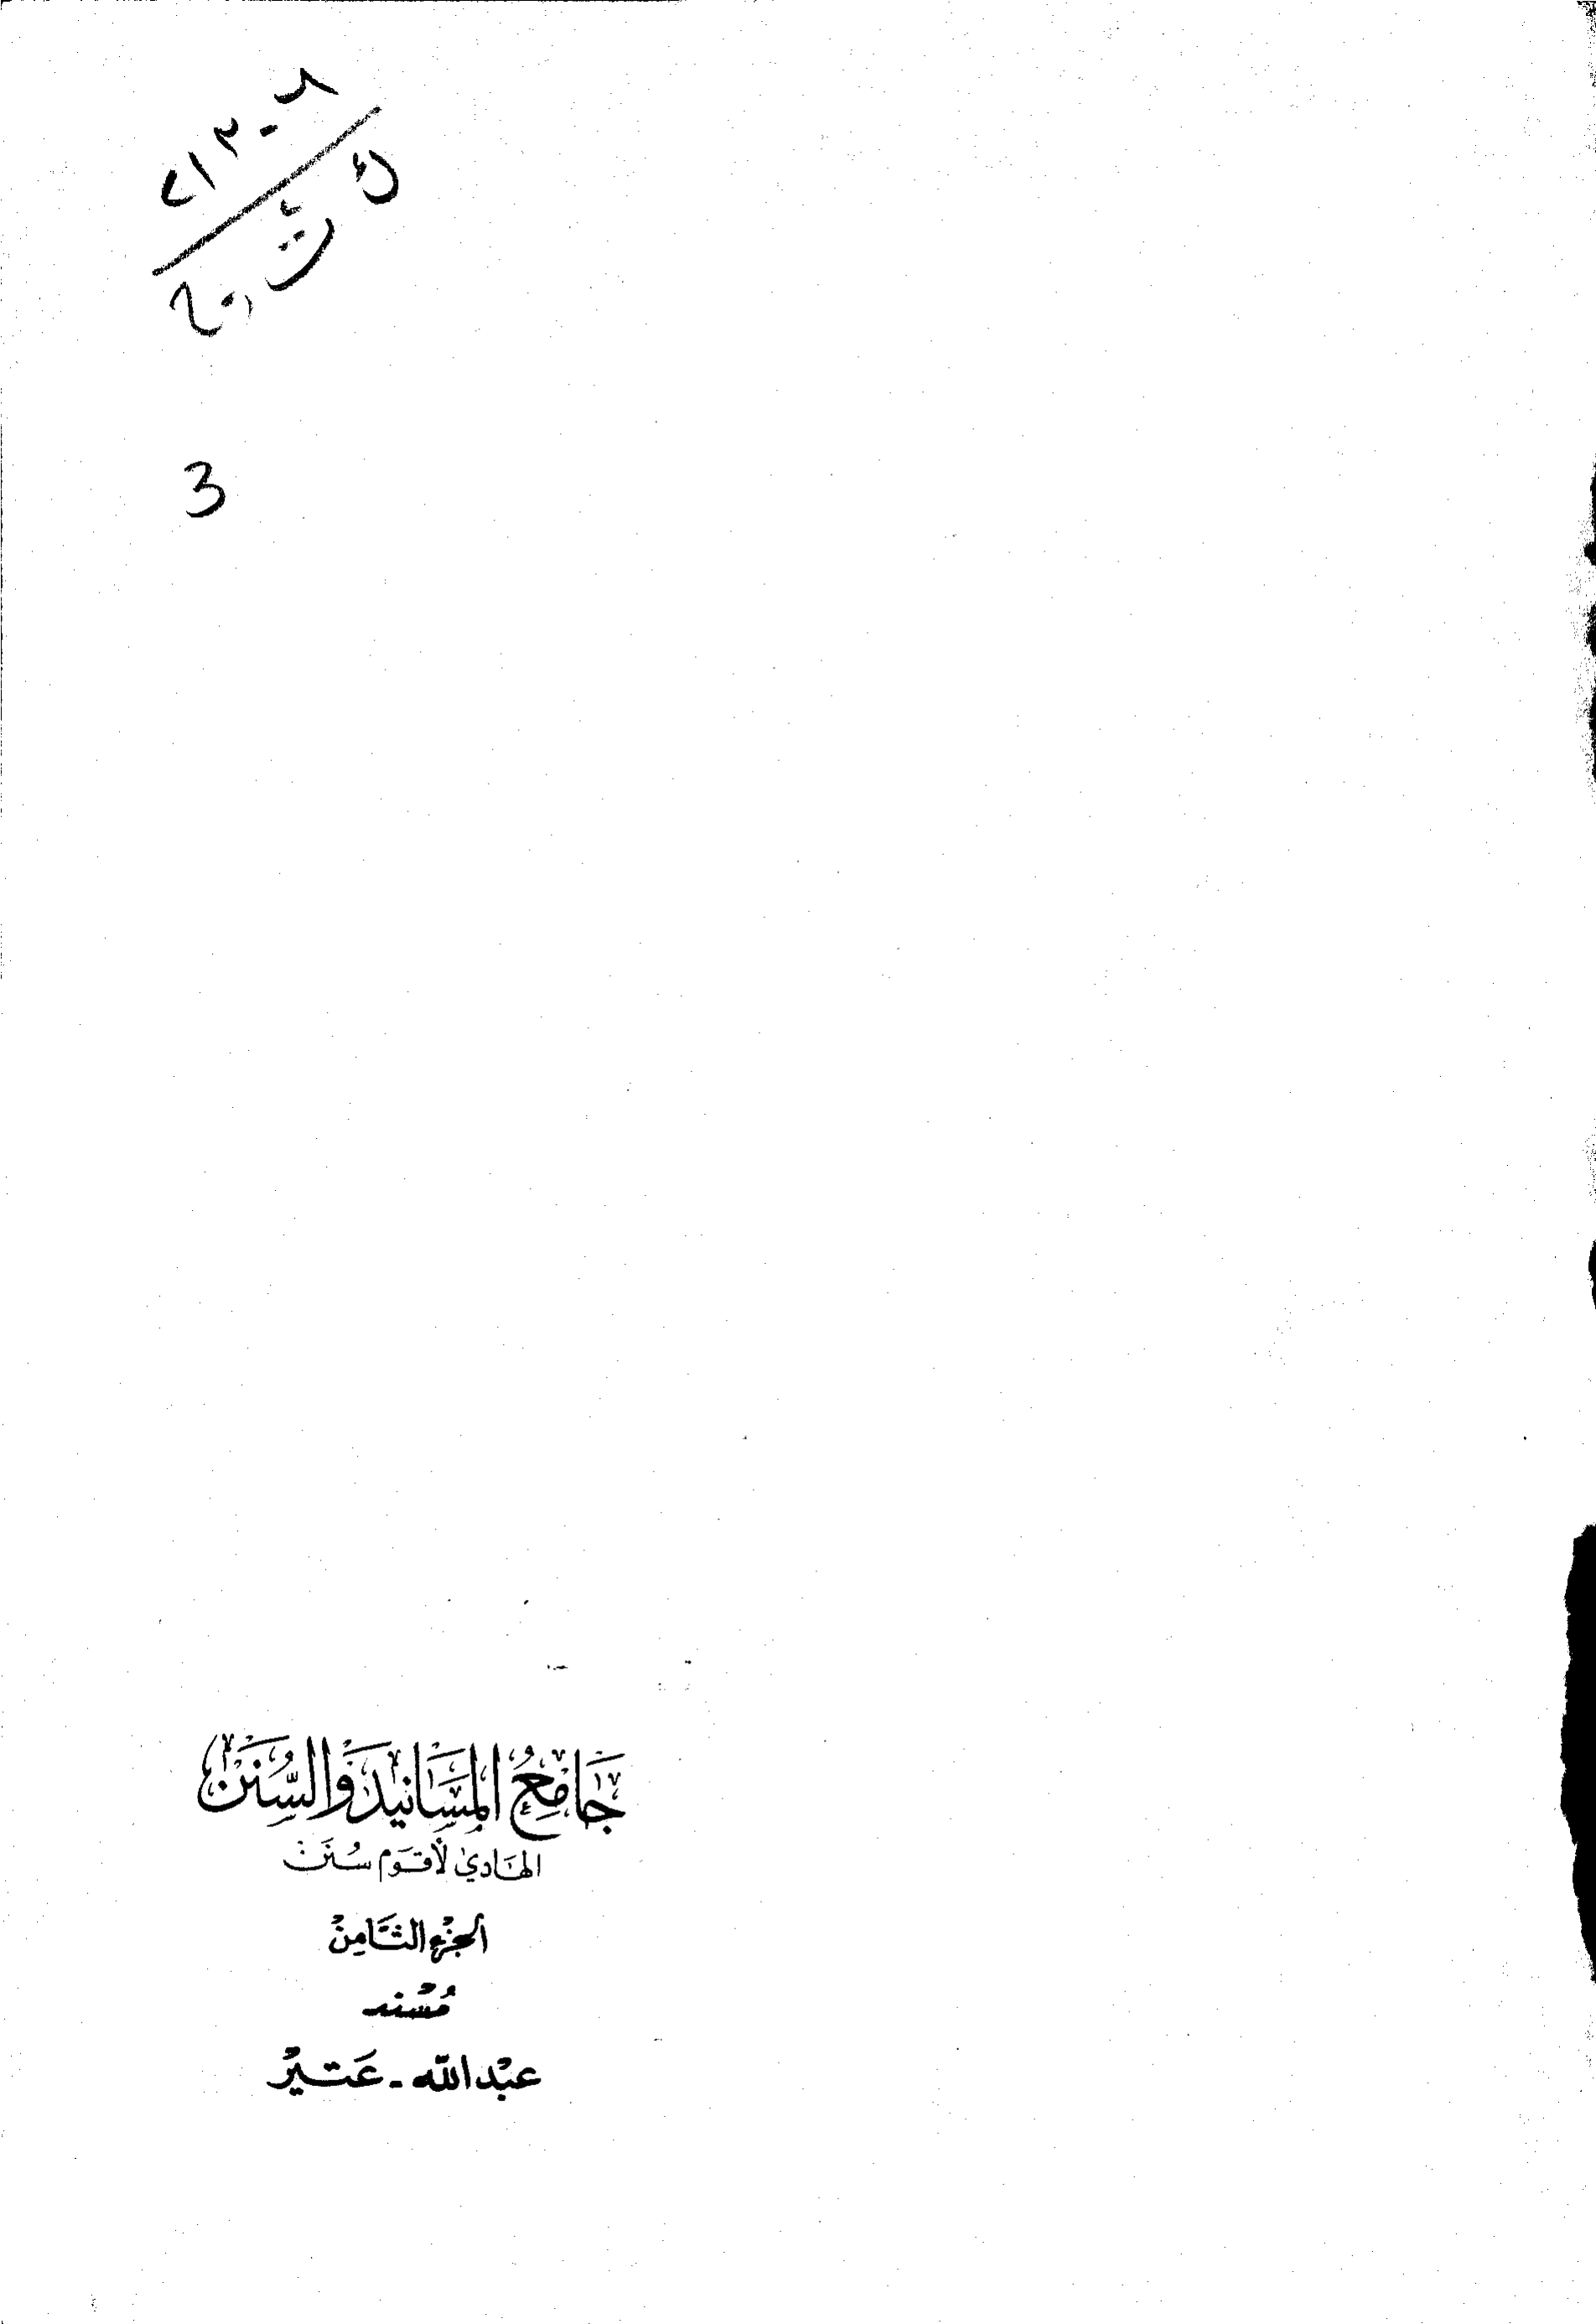 3
جَامِعُ المَسَانِيدِ وَالسُّنَن
الهَادِي لِأَقْوَم سُنَن
الجُزء الثَّامِنْ
مُسْنَد
عَبْد اللّه - عَتِيرْ